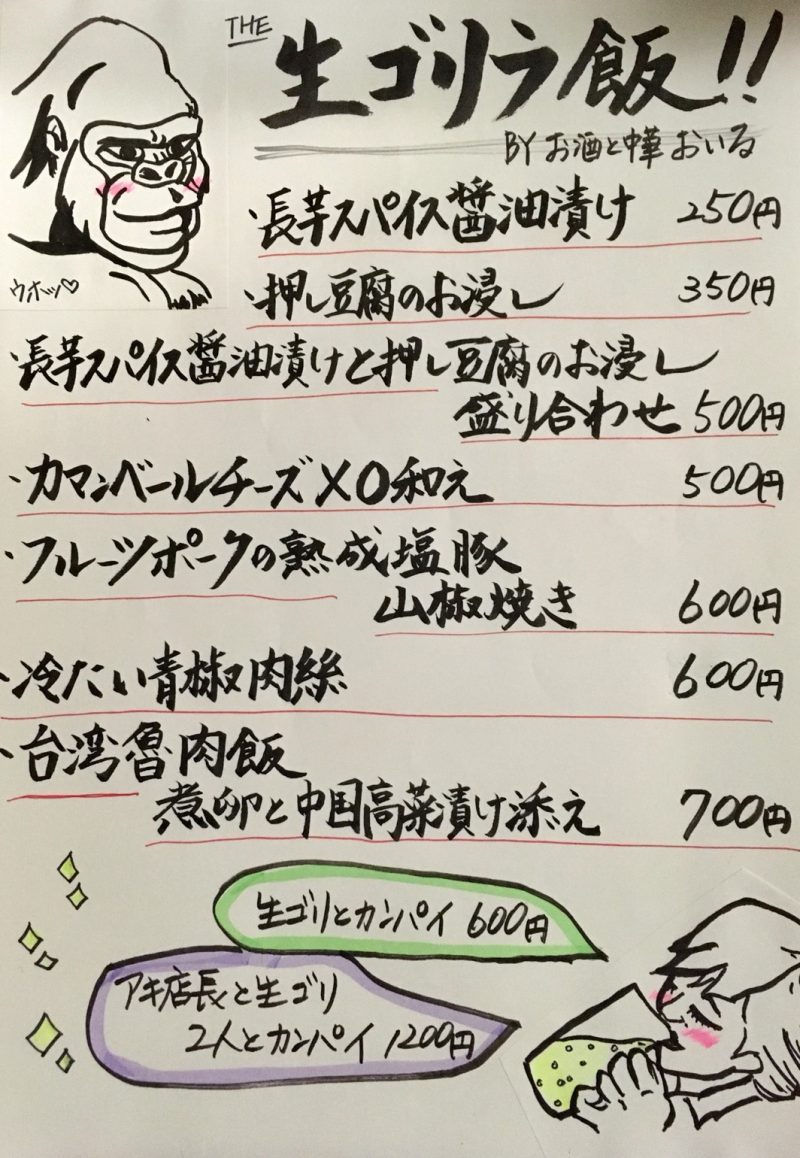 THE
生ゴリラ飯!!
BY お酒と中華 おいる
・長芋スパイス醤油漬け 250円
・押し豆腐のお浸し 350円
・長芋スパイス醤油漬けと押し豆腐のお浸し
盛り合わせ 500円
・カマンベールチーズXO和え 500円
・フルーツポークの熟成塩豚
山椒焼き 600円
・冷たい青椒肉絲 600円
・台湾魯肉飯
煮卵と中国高菜漬け添え 700円
ウホッ♡
生ゴリとカンパイ 600円
アキ店長と生ゴリ
2人とカンパイ 1200円